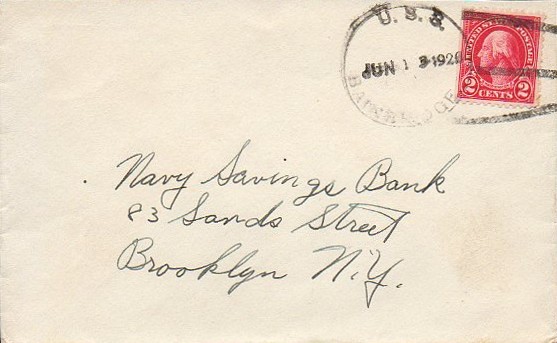 U. S. S.
JUN 13 192
BAINBRIDGE
UNITED STATES POSTAGE
2 CENTS 2
Navy Savings Bank
83 Sands Street
Brooklyn N.Y.